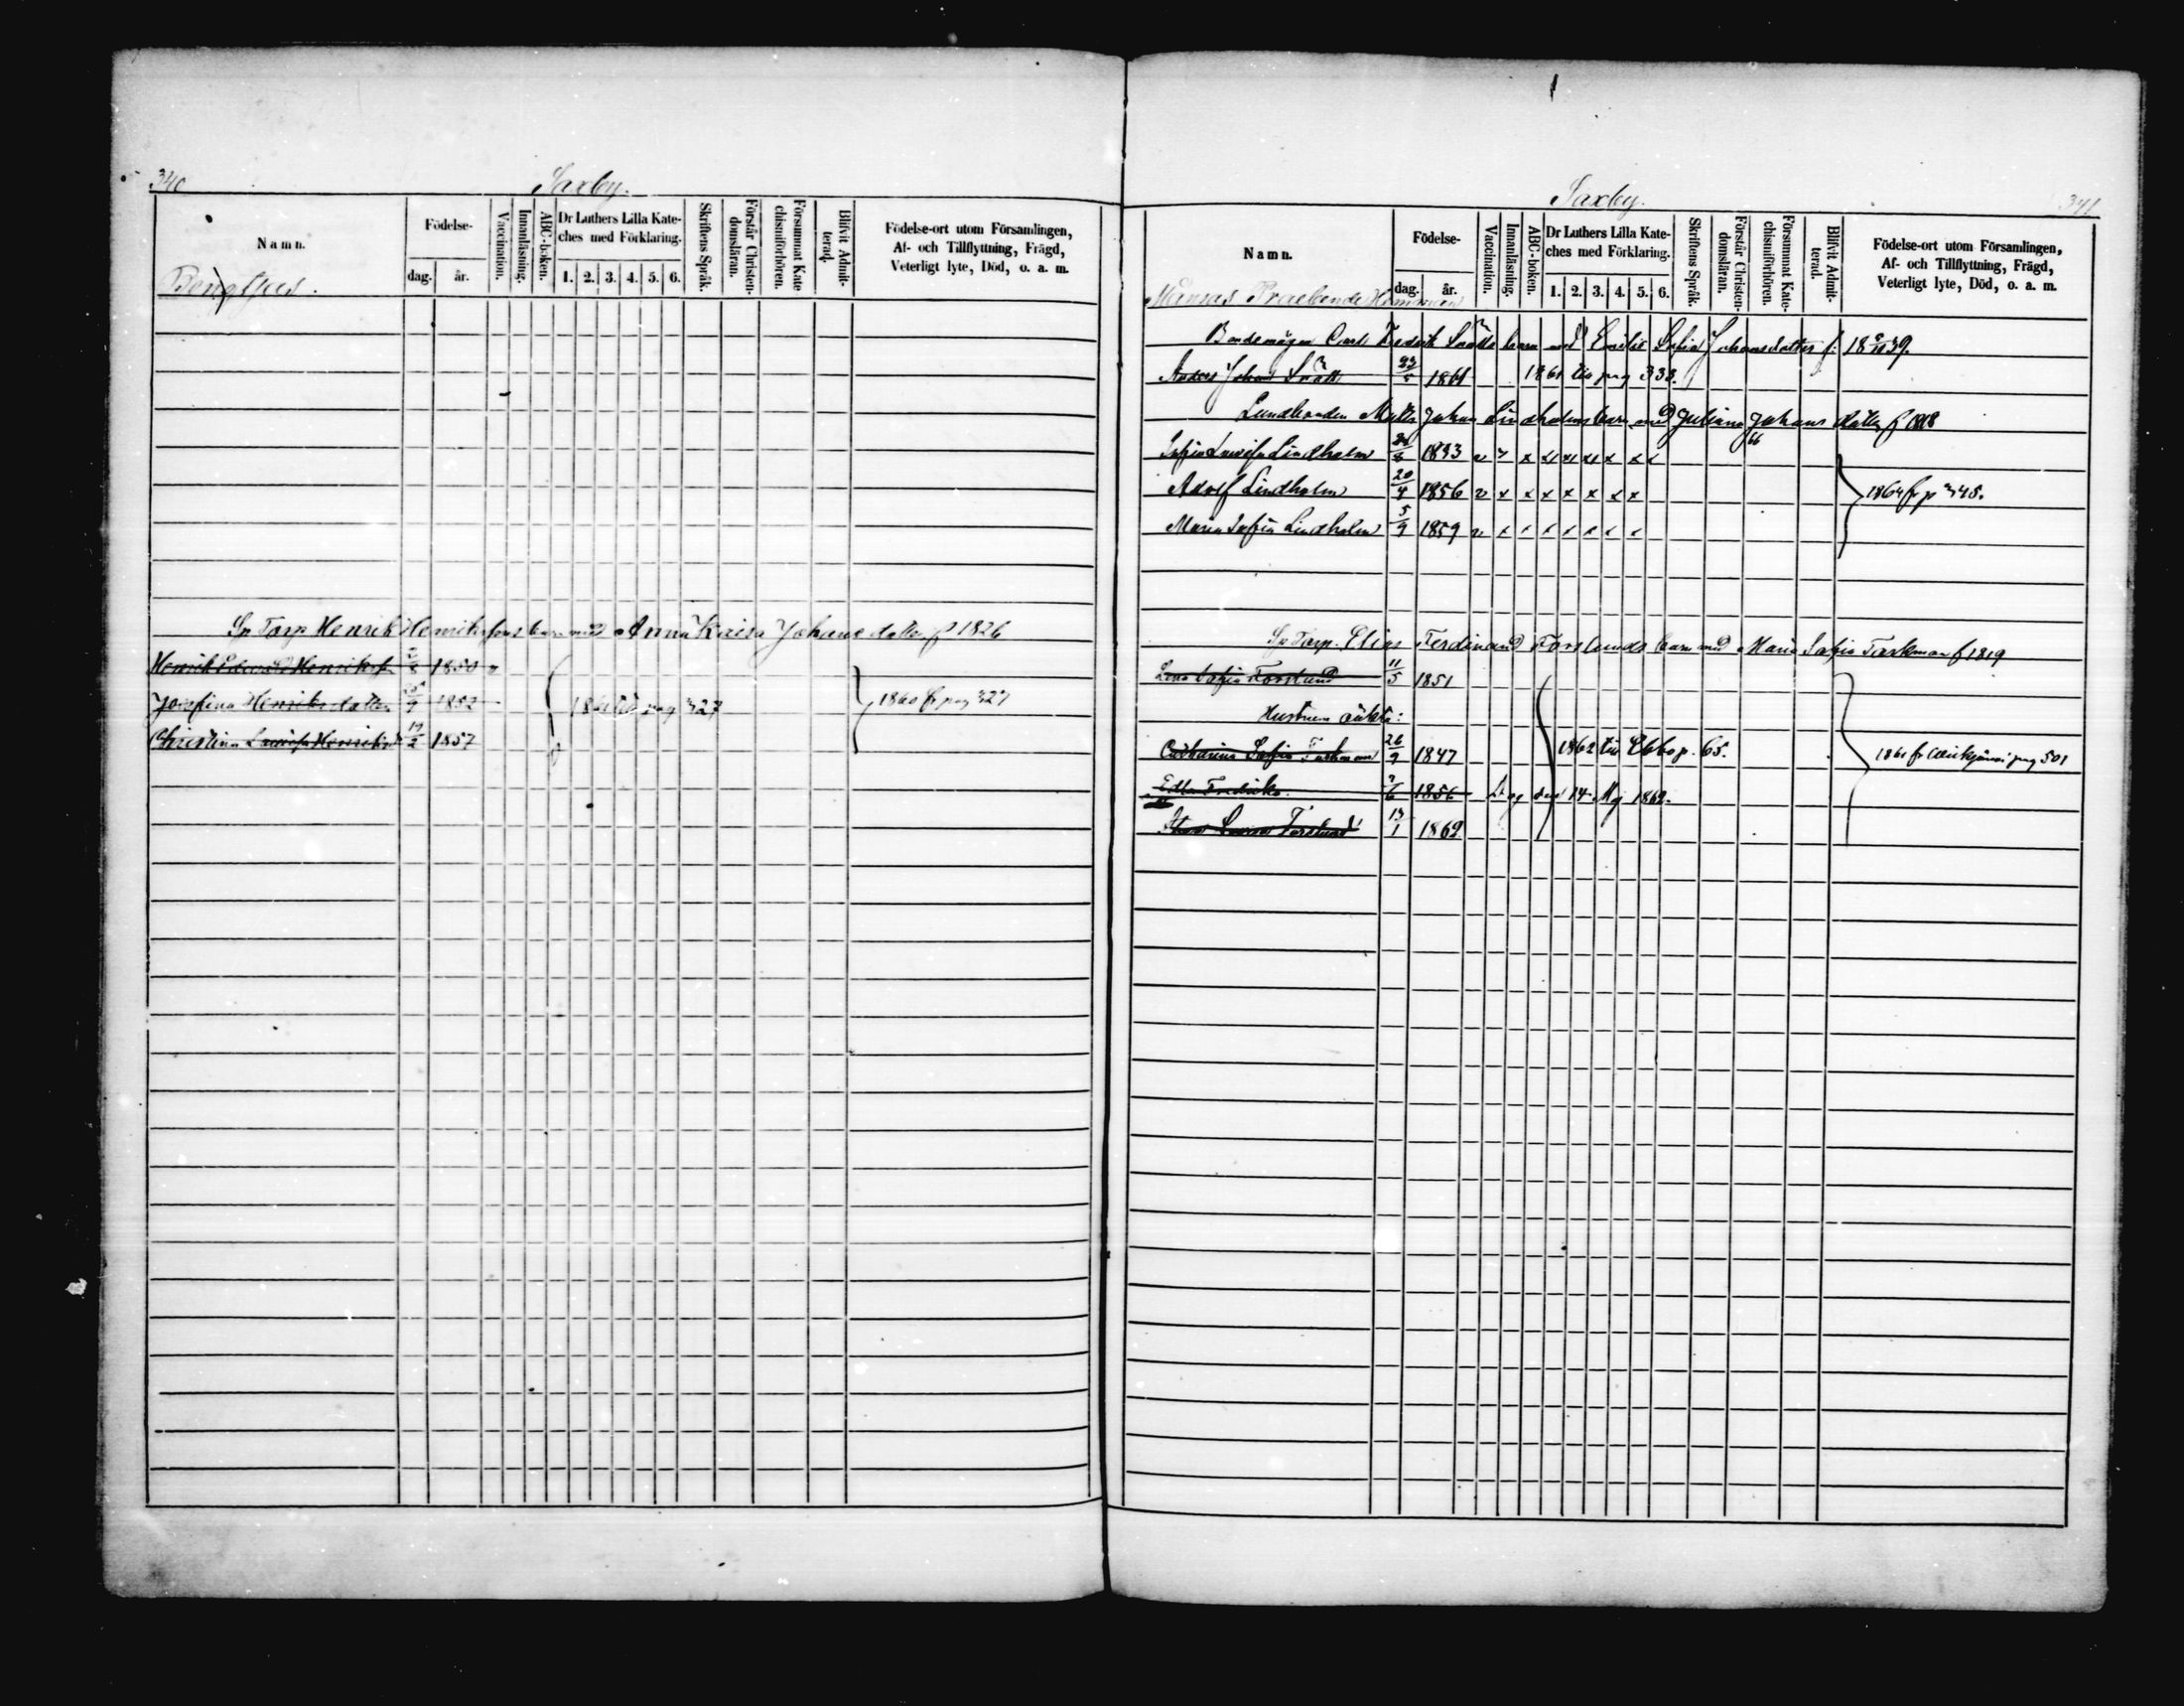 340
Saxby.
Namn.
Födelse-
dag. år.
Vaccination.
Innanläsning.
ABC-boken.
Dr Luthers Lilla Kate-
ches med Förklaring.
1. 2. 3. 4. 5. 6.
Skriftens Språk.
Förstår Christen-
domsläran.
Försummat Kate
chismiförhören.
Blifvit Admit-
terad.
Födelse-ort utom Församlingen,
Af- och Tillflyttning, Frägd,
Veterligt lyte, Död, o. a. m.
Sp Torp Henrik Henrikssons barn med Anna Kaisa Johansdotter f 1826
1850
Josefina Henriksdotter 1852 pag 327 1860 fr pag 327
Christina Lovisa 19/2 1857
Saxby.
341
Namn.
Födelse-
dag. år.
Vaccination.
Innanläsning.
ABC-boken.
Dr Luthers Lilla Kate-
ches med Förklaring.
1. 2. 3. 4. 5. 6.
Skriftens Språk.
Förstår Christen-
domsläran.
Försummat Kate-
chismiförhören.
Blifvit Admit-
terad.
Födelse-ort utom Församlingen,
Af- och Tillflyttning, Frägd,
Veterligt lyte, Död, o. a. m.
Månsas Praebende Hemman
Bondemågen Carl Fredrik barn med Emilie Sofia Johansdotter f: 18 39.
Anders Johan 1861 1861 till pag 338.
Matts Johan Lindholms barn med Juliana Johansdotter f 1818
66
Sofia Lovisa Lindholm 1853 v x x x x x x
Adolf Lindholm 20/4 1856 v x x x x x x x 1864 fr p 345.
Maria Sofia Lindholm 5/9 1859 v x
Sp Torp. Elias Ferdinand Forslunds barn med Maria Sofia Taskman f 1819
Lena Sofia Forslund 11/5 1851
Hustruns oäkta:
Catharina Sofia Taskman 26/9 1847 1862 till Ebbo p. 65. 1861 fr pag 501
Edla Fredrika 1856 den 14 Maj 1862.
Lovisa Forslund 13/1 1862